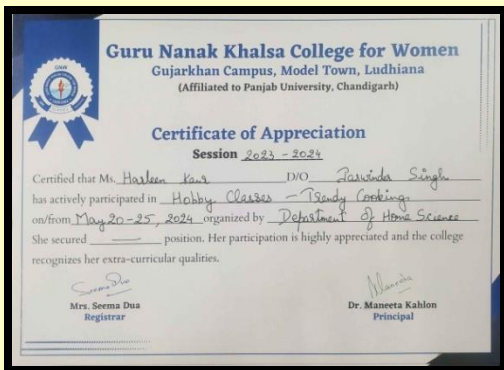 GNKW
Guru Nanak Khalsa College for Women
Gujarkhan Campus, Model Town, Ludhiana
(Affiliated to Panjab University, Chandigarh)
Certificate of Appreciation
Session 2023 - 2024
Certified that Ms. Harleen Kaur D/O Parwinder Singh
has actively participated in Hobby Classes - Trendy Cooking
on/from May 20-25, 2024 organized by Department of Home Science
She secured — position. Her participation is highly appreciated and the college
recognizes her extra-curricular qualities.
Mrs. Seema Dua
Registrar
Dr. Maneeta Kahlon
Principal